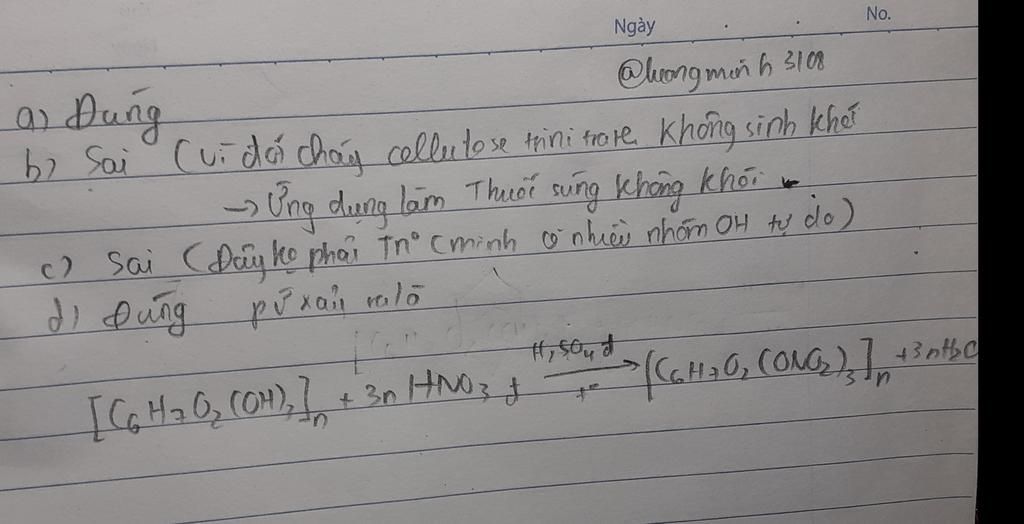 Ngày No.
@luongminh3108
a) Đúng
b) Sai (Vì đốt cháy cellulose trinitrate không sinh khói
→ Ứng dụng làm Thuốc súng không khói
c) Sai (Đây ko phải Tn° cminh có nhiều nhóm OH tự do)
d) Đúng pứ xảy ra là
[C6H7O2(OH)3]n + 3nHNO3 đ H2SO4 đ t° → [C6H7O2(ONO2)3]n +3nH2O